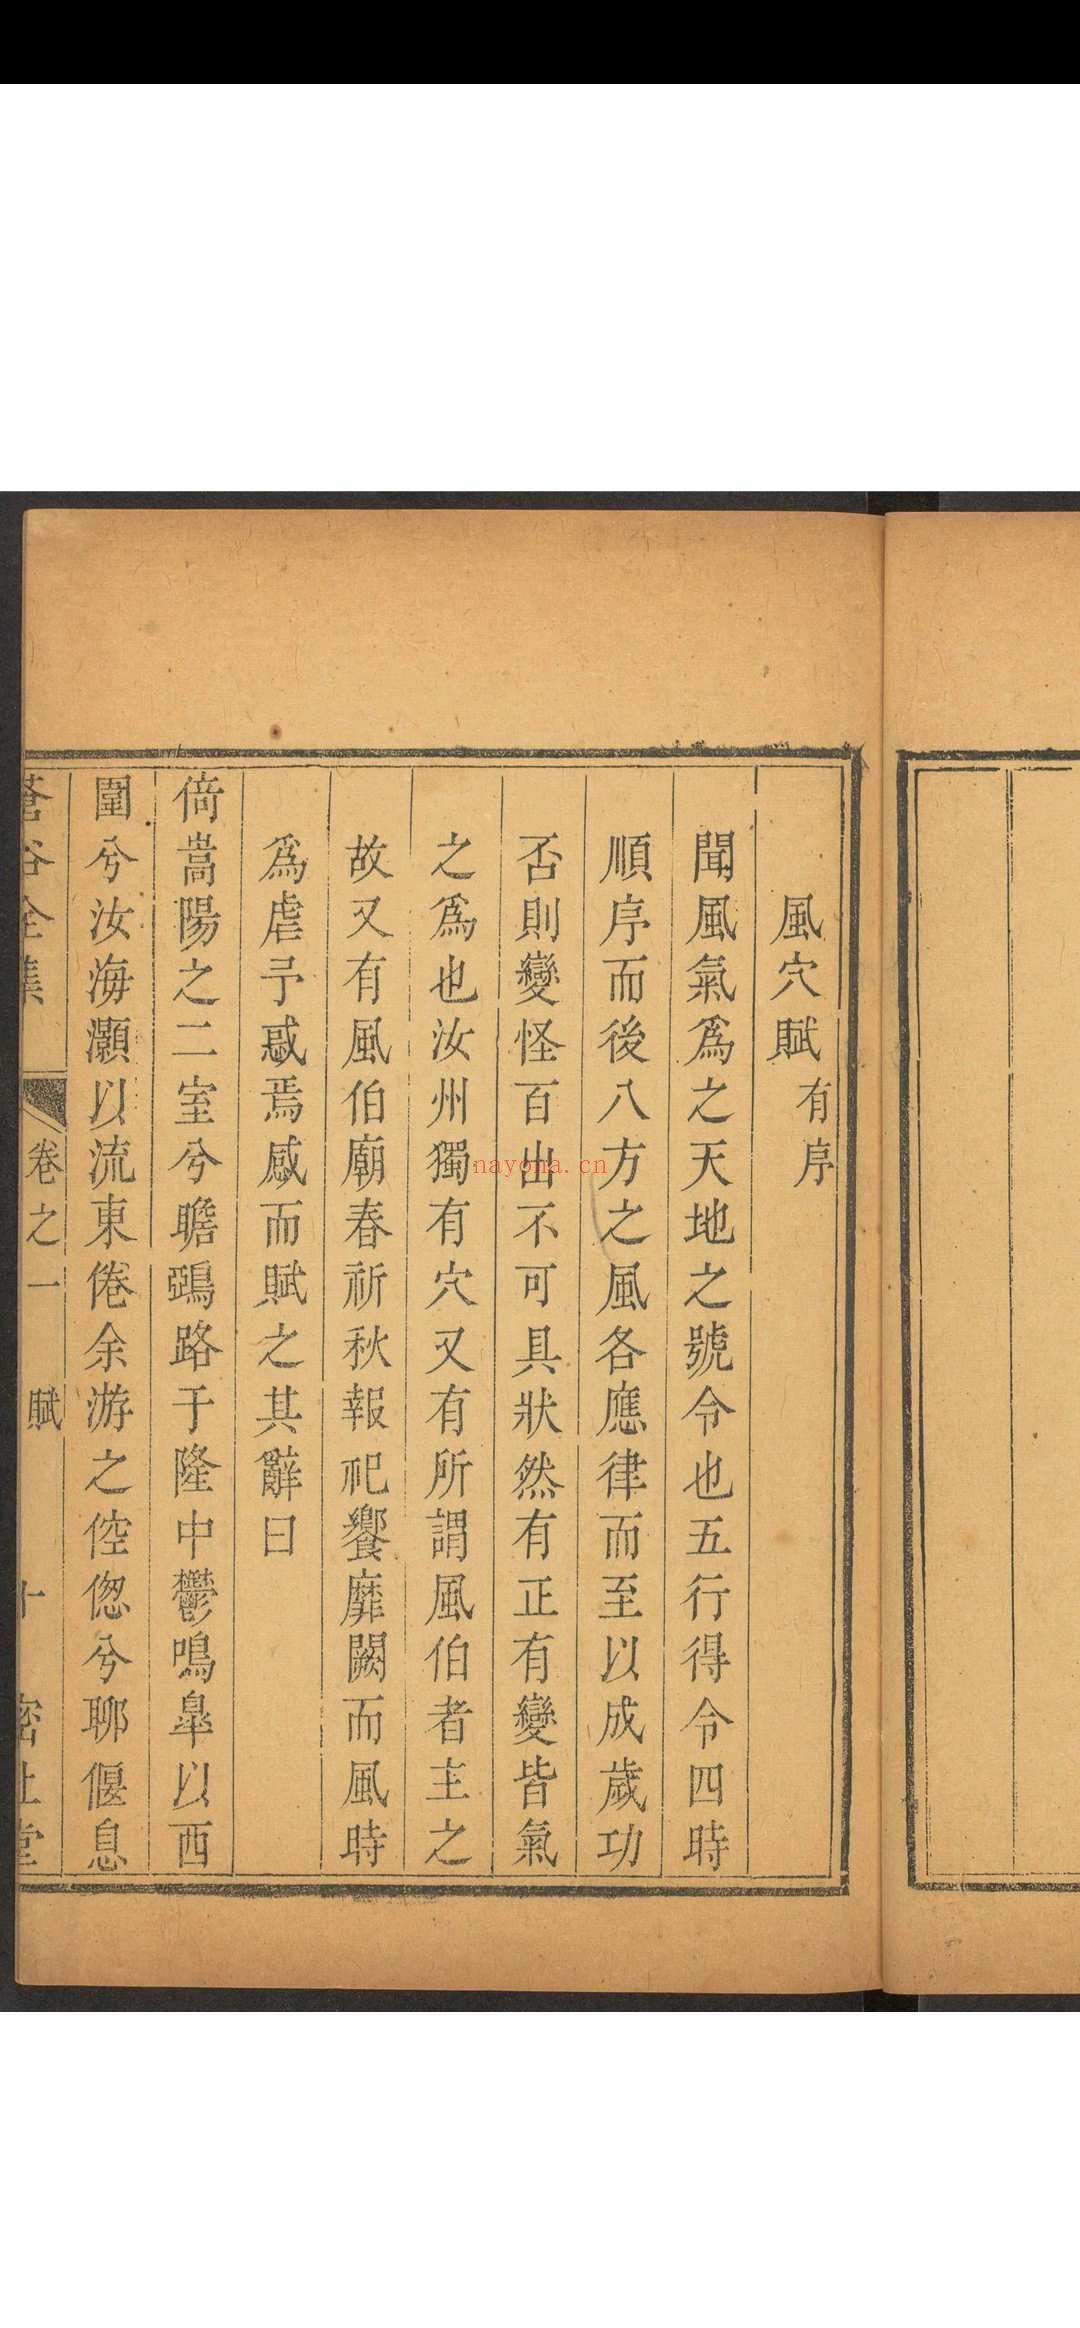 風穴賦有序
聞風氣爲之天地之號令也五行得令四時
順序而後八方之風各應律而至以成歲功
否則變怪百出不可具狀然有正有變皆氣
之爲也汝州獨有穴又有所謂風伯者主之
故又有風伯廟春祈秋報祀饗靡闕而風時
爲虐予惑焉感而賦之其辭曰
倚嵩陽之二室兮瞻鵶路于隆中鬱鳴皐以西
圍兮汝海灝以流東倦余游之倥偬兮聊偃息
蒼谷全集 卷之一 賦 十 密止堂
nayona.cn